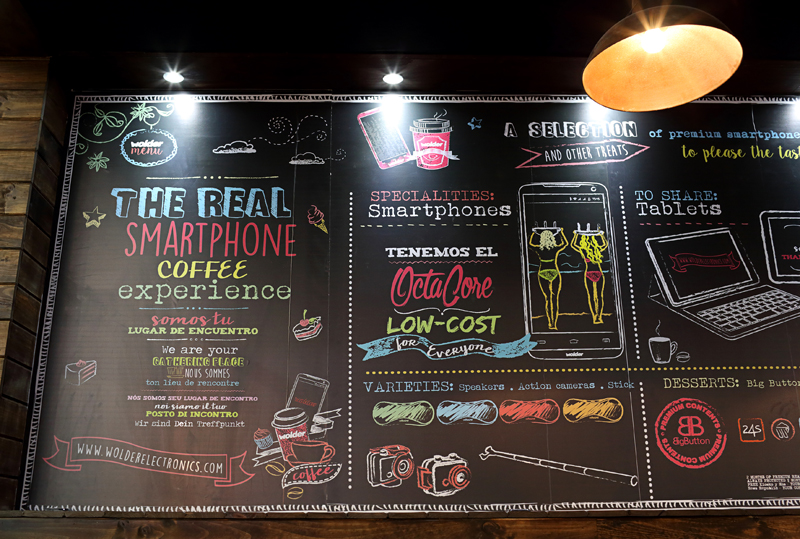 wolder
menu
THE REAL
SMARTPHONE
COFFEE
experience
somos tu
LUGAR DE ENCUENTRO
We are your
GATHERING PLACE
NOUS SOMMES
ton lieu de rencontre
NÓS SOMOS SEU LUGAR DE ENCONTRO
noi siamo il tuo
POSTO DI INCONTRO
Wir sind Dein Treffpunkt
WWW.WOLDERELECTRONICS.COM
wolder
coffee
wolder
A SELECTION
AND OTHER TREATS
of premium smartphone
to please the tast
SPECIALITIES:
Smartphones
TENEMOS EL
OctaCore
LOW-COST
for Everyone
wolder
TO SHARE:
Tablets
VARIETIES: Speakers . Action cameras . Stick
DESSERTS: Big Button
PREMIUM CONTENTS
BB
BigButton
PREMIUM CONTENTS
24S